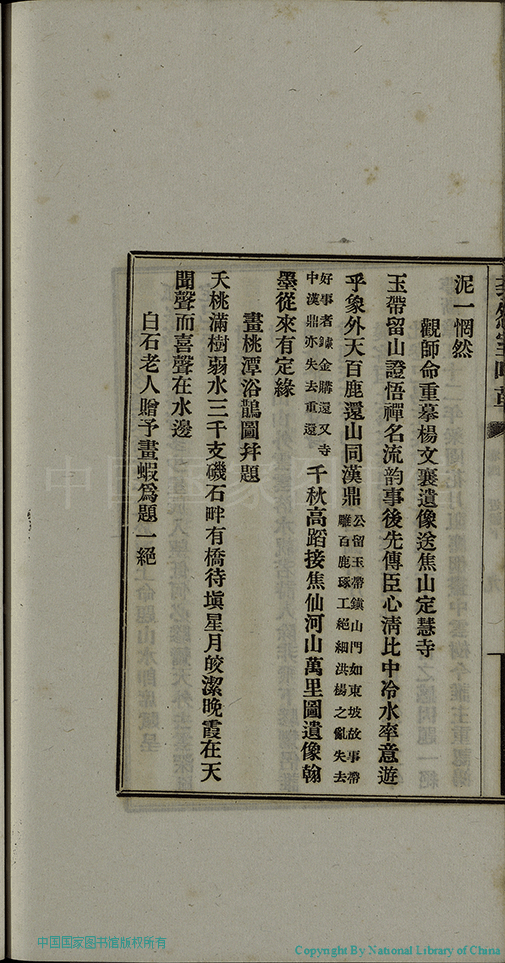 泥一惘然
觀師命重摹楊文襄遺像送焦山定慧寺
玉帶留山證悟禪名流韵事後先傳臣心清比中泠水率意遊
乎象外天百鹿還山同漢鼎
公留玉帶鎮山門如東坡故事帶
雕百鹿琢工絕細洪楊之亂失去
好事者鐻金購還又寺
中漢鼎亦失去重還
千秋高蹈接焦仙河山萬里圖遺像翰
墨從來有定緣
畫桃潭浴鵲圖并題
夭桃滿樹弱水三千支磯石畔有橋待塡星月皎潔晚霞在天
聞聲而喜聲在水邊
白石老人贈予畫蝦爲題一絕
中国国家图书馆版权所有
Copyright By National Library of China